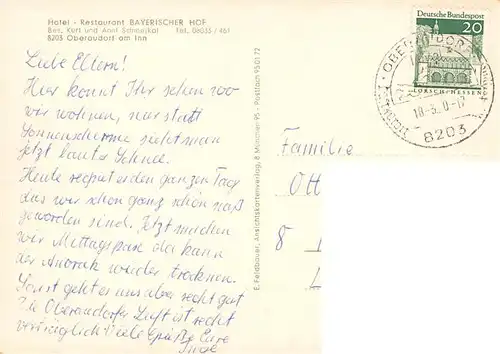 Hotel - Restaurant BAYERISCHER HOF
Bes. Kurt und Anni Schnejkal Tel. 08033/461
8203 Oberaudorf am Inn
Deutsche Bundespost
20
LORSCH/HESSEN
OBERAUDORF
18-5.
8203
Liebe Eltern!
Hier könnt Ihr sehen wo
wir wohnen, nur statt
Sonnenschirme sieht man
jetzt lauter Schnee.
Heute regnet es den ganzen Tag
das wir schon ganz schön naß
geworden sind. Jetzt machen
wir Mittagspause da kann
der Anorak wieder trocknen.
Sonst geht es uns aber recht gut
Die Oberaudorfer Luft ist recht
verträglich Viele Grüße Eure
E. Feldbauer, Ansichtskartenverlag, 8 München 95 - Postfach 950172
Familie
Ott
8